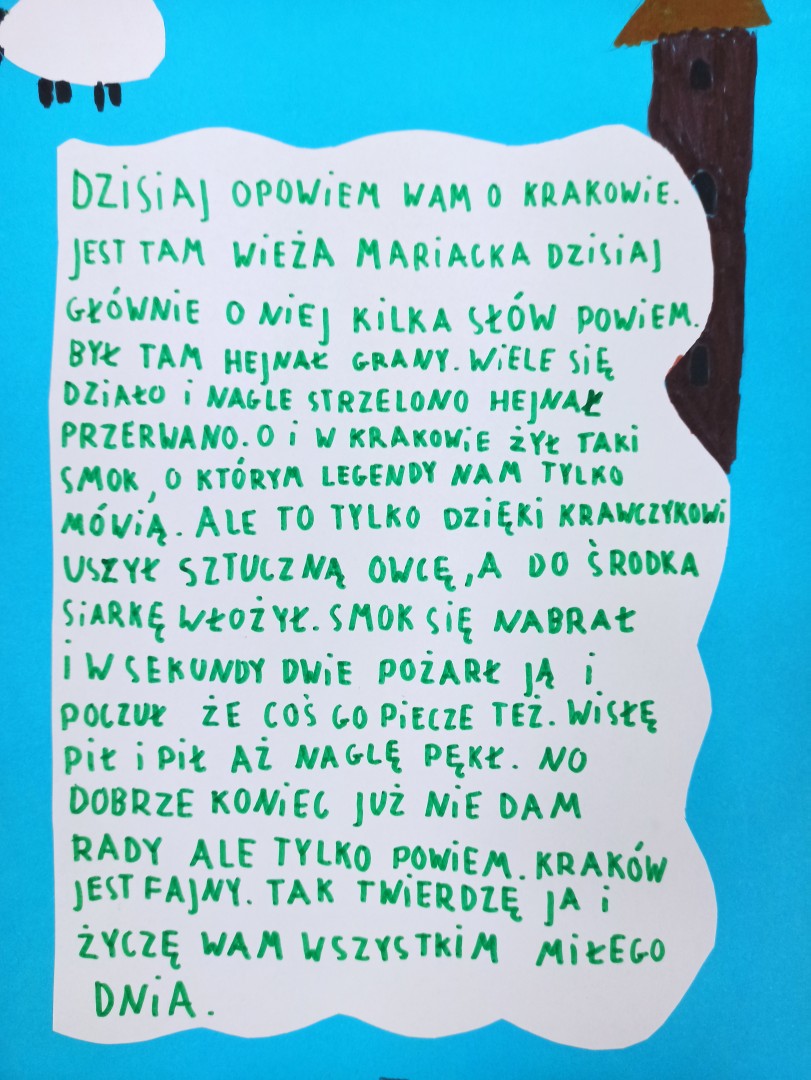 DZISIAJ OPOWIEM WAM O KRAKOWIE.
JEST TAM WIEŻA MARIACKA DZISIAJ
GŁÓWNIE O NIEJ KILKA SŁÓW POWIEM.
BYŁ TAM HEJNAŁ GRANY. WIELE SIĘ
DZIAŁO I NAGLE STRZELONO HEJNAŁ
PRZERWANO. O I W KRAKOWIE ŻYŁ TAKI
SMOK, O KTÓRYM LEGENDY NAM TYLKO
MÓWIĄ. ALE TO TYLKO DZIĘKI KRAWCZYKOWI
USZYŁ SZTUCZNĄ OWCĘ, A DO ŚRODKA
SIARKĘ WŁOŻYŁ. SMOK SIĘ NABRAŁ
I W SEKUNDY DWIE POŻARŁ JĄ I
POCZUŁ ŻE COŚ GO PIECZE TEŻ. WISŁĘ
PIŁ I PIŁ AŻ NAGLĘ PĘKŁ. NO
DOBRZE KONIEC JUŻ NIE DAM
RADY ALE TYLKO POWIEM. KRAKÓW
JEST FAJNY. TAK TWIERDZĘ JA I
ŻYCZĘ WAM WSZYSTKIM MIŁEGO
DNIA.